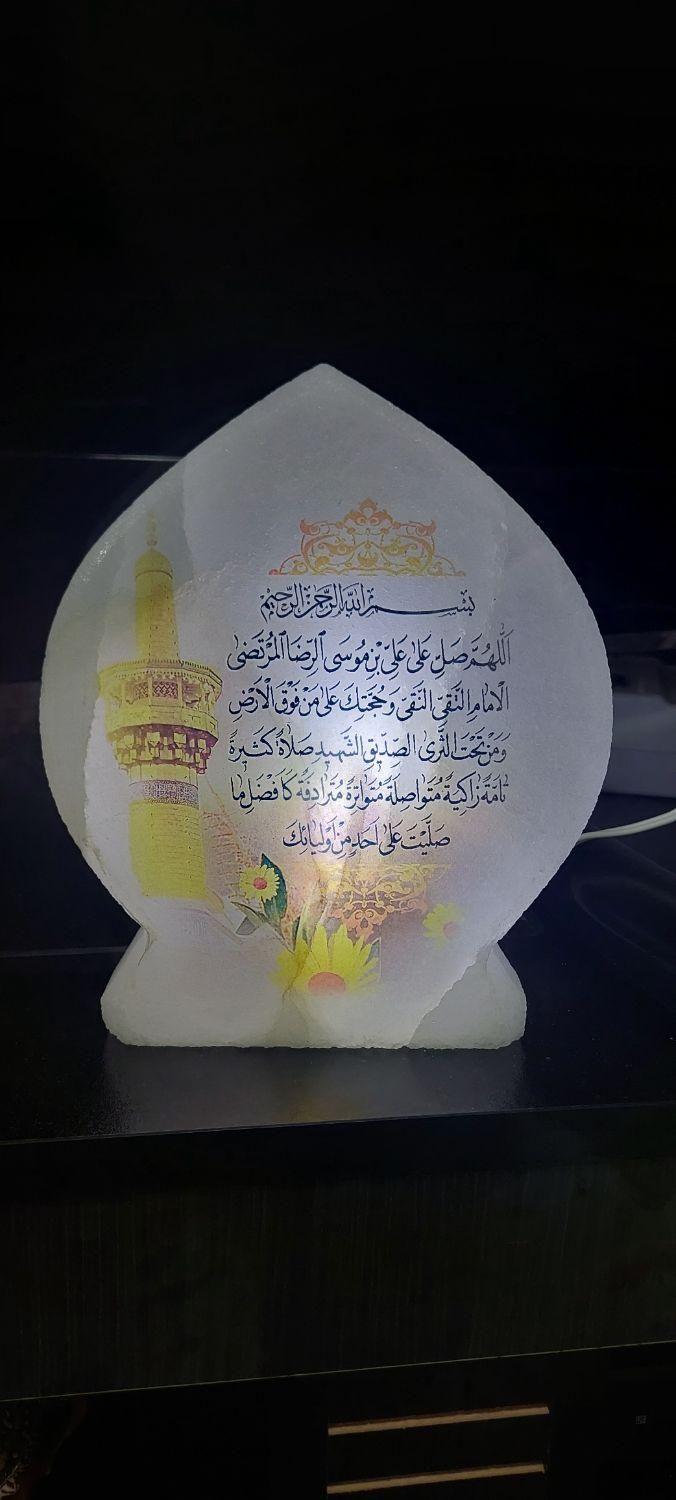 بِسْمِ اللهِ الرَّحْمٰنِ الرَّحِيْمِ
اَللّٰهُمَّ صَلِّ عَلىٰ عَلِىِّ بْنِ مُوسَى الرِّضَا الْمُرْتَضىٰ
الْاِمَامِ التَّقِىِّ النَّقِىِّ وَحُجَّتِكَ عَلىٰ مَنْ فَوْقَ الْاَرْضِ
وَمَنْ تَحْتَ الثَّرىٰ الصِّدّيقِ الشَّهيدِ صَلاةً كَثيرَةً
تٰامَّةً زٰاكِيَةً مُتَوٰاصِلَةً مُتَوٰاتِرَةً مُتَرٰادِفَةً كَاَفْضَلِ مٰا
صَلَّيْتَ عَلىٰ اَحَدٍ مِنْ اَوْلِيٰائِكَ